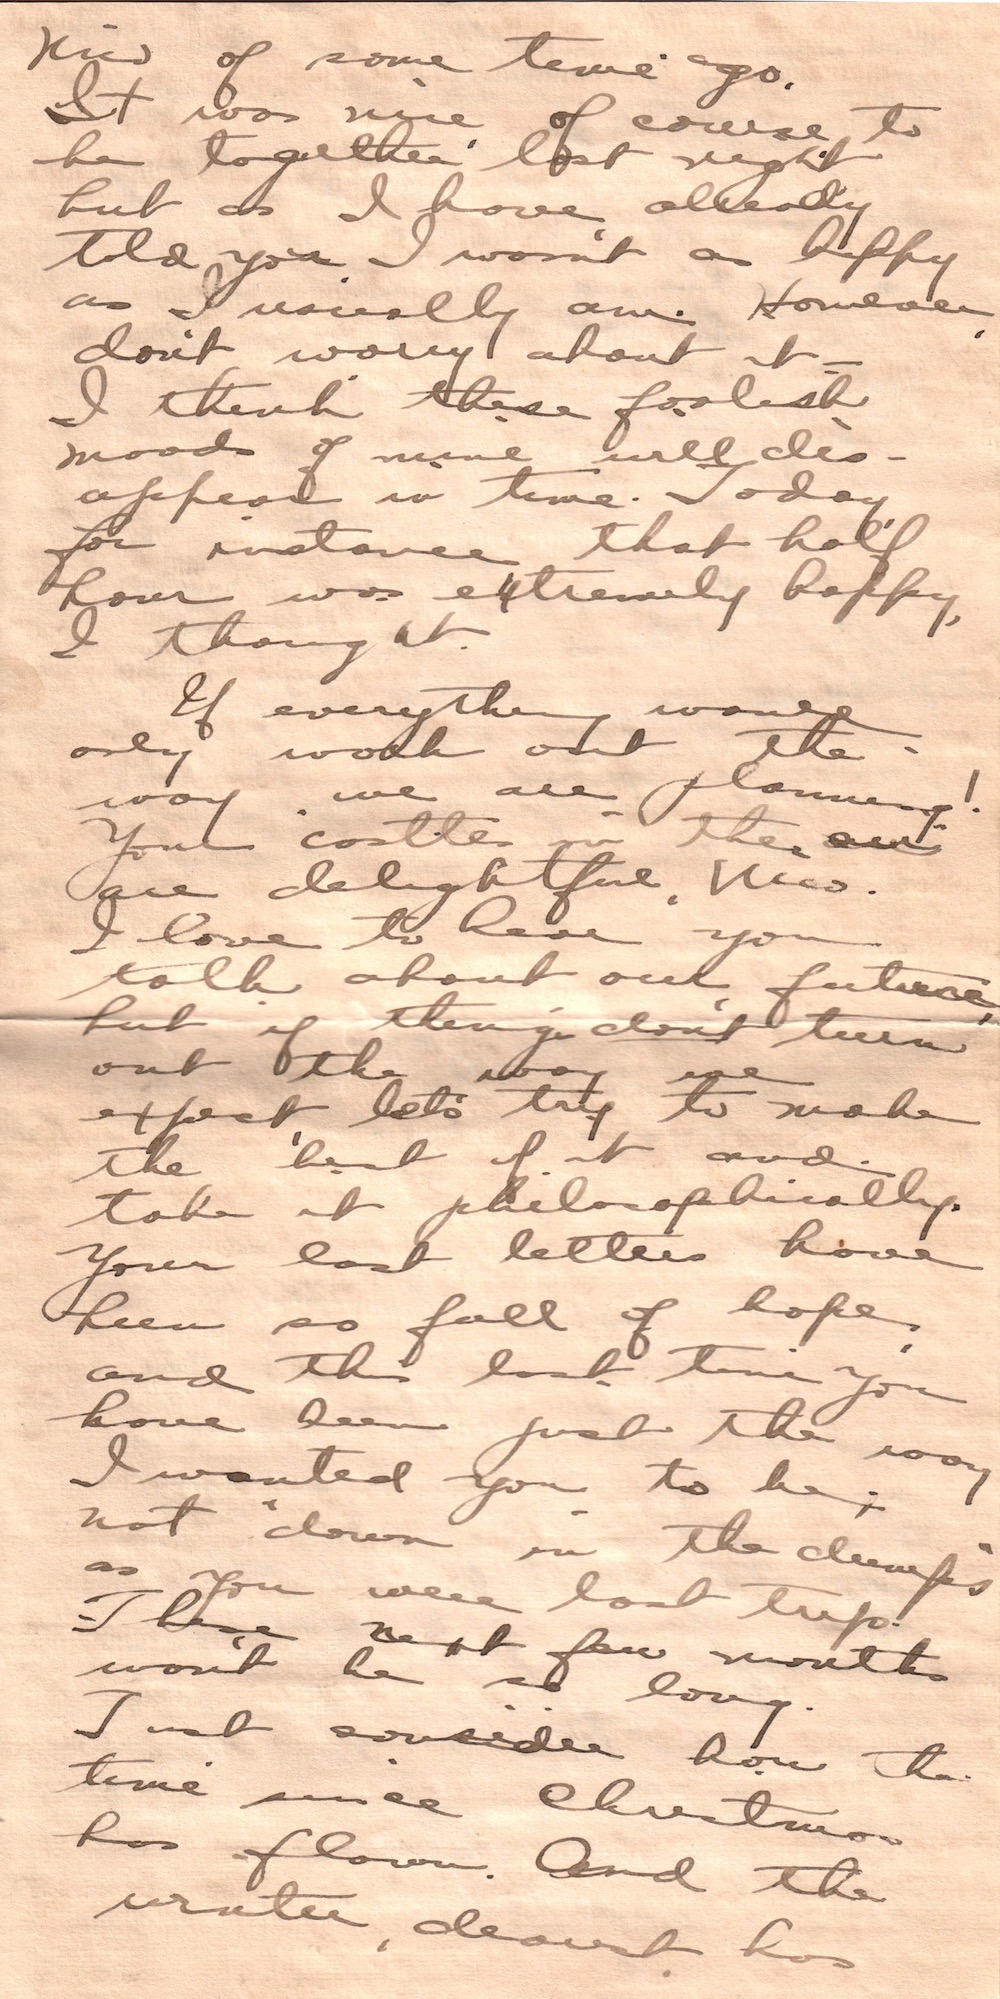 Nico of some time ago.
It was nice, of course, to
be together last night
but as I have already
told you I wasn't as happy
as I usually am. However,
don't worry about it –
I think these foolish
moods of mine will dis-
appear in time. Today,
for instance, that half
hour was extremely happy,
I thought.
If everything would
only work out the
way we are planning!
Your castles in the air
are delightful, Nico.
I love to hear you
talk about our future,
but if things don't turn
out the way we
expect, let's try to make
the best of it and
take it philosophically.
Your last letters have
been so full of hope,
and this last time you
have been just the way
I wanted you to be;
not "down in the dumps"
as you were last trip.
These next few months
won't be so long.
Just consider how the
time since Christmas
has flown. And the
winter, dearest, has